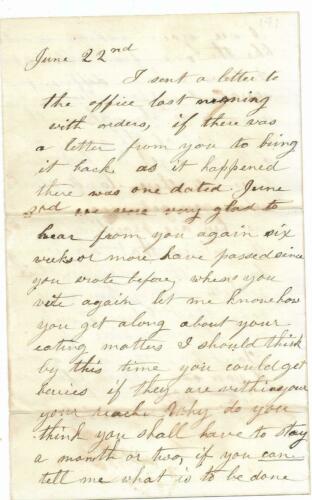 191
June 22nd
I sent a letter to
the office last morning
with orders, if there was
a letter from you to bring
it back. as it happened
there was one dated June
3rd we were very glad to
hear from you again six
weeks or more have passed since
you wrote before, when you
write again let me know how
you get along about your
eating matters I should think
by this time you could get
berries if they are within your
your reach. Why do you
think you shall have to stay
a month or two, if you can
tell me what is to be done